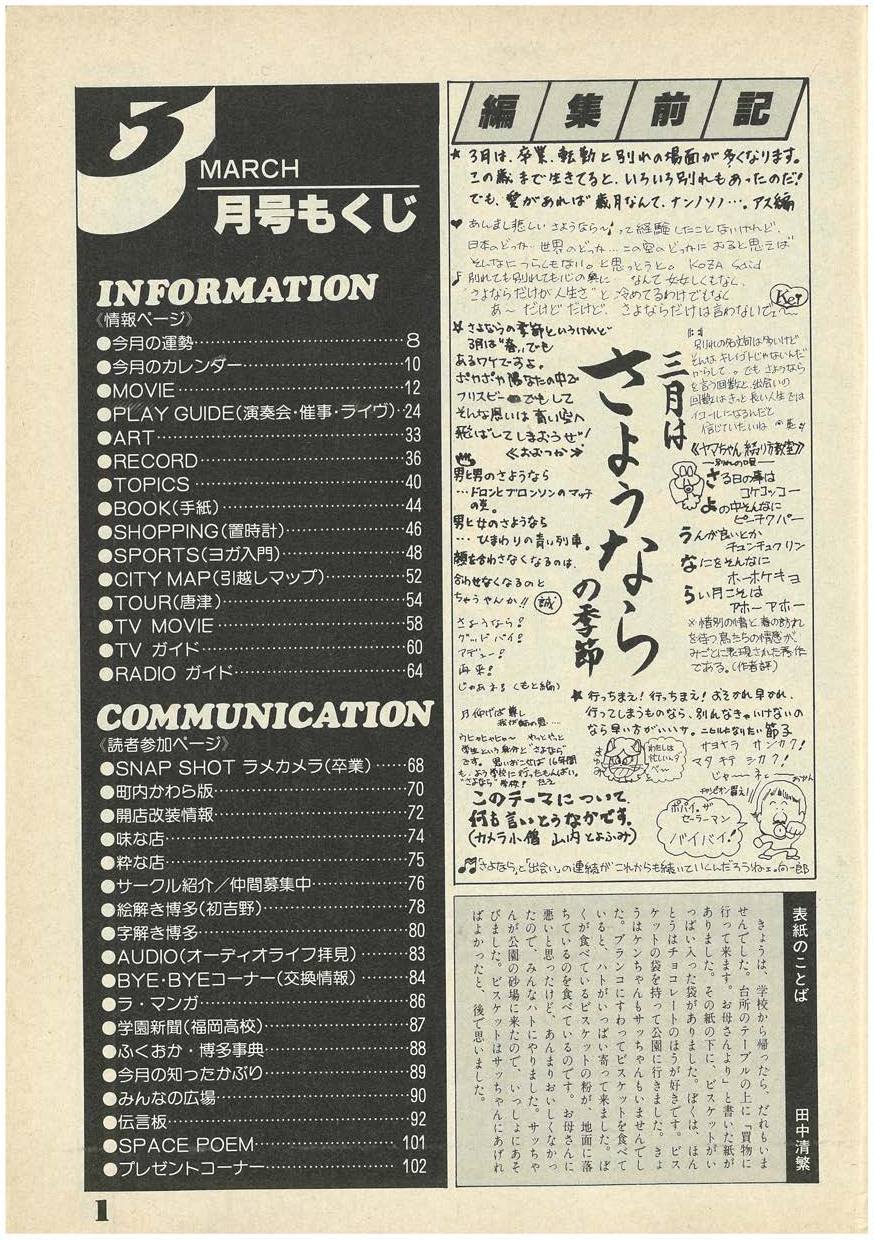 3
MARCH
月号もくじ
INFORMATION
《情報ページ》
●今月の運勢……8
●今月のカレンダー……10
●MOVIE……12
●PLAY GUIDE(演奏会・催事・ライヴ)…24
●ART……33
●RECORD……36
●TOPICS……40
●BOOK(手紙)……44
●SHOPPING(置時計)……46
●SPORTS(ヨガ入門)……48
●CITY MAP(引越しマップ)……52
●TOUR(唐津)……54
●TV MOVIE……58
●TV ガイド……60
●RADIO ガイド……64
COMMUNICATION
《読者参加ページ》
●SNAP SHOT ラメカメラ(卒業)……68
●町内かわら版……70
●開店改装情報……72
●味な店……74
●粋な店……75
●サークル紹介／仲間募集中……76
●絵解き博多(初吉野)……78
●字解き博多……80
●AUDIO(オーディオライフ拝見)……83
●BYE・BYEコーナー(交換情報)……84
●ラ・マンガ……86
●学園新聞(福岡高校)……87
●ふくおか・博多事典……88
●今月の知ったかぶり……89
●みんなの広場……90
●伝言板……92
●SPACE POEM……101
●プレゼントコーナー……102
1
編集前記
★3月は、卒業、転勤と別れの場面が多くなります。
この歳まで生きてると、いろいろ別れもあったのだ!
でも、愛があれば歳月なんて、ナンノソノ…。アス編
♥あんまし悲しいさようなら〜って経験したことないけれど、
日本のどっか…世界のどっか…この空のどっかにおると思えば
そんなにつらくもない。と思っとうと。KOZA Said
♪別れても別れても心の奥に なんて女々しくもなく、
さよならだけが人生さ"と冷めてるわけでもなく
あ〜だけどだけど、さよならだけは言わないでェ〜
Kei
☆さよならの季節というけれど
3月は"春"でも
あるワケですよ。
ポカポカ陽なたの中で
フリスビーでもして
そんな思いは青い空へ
飛ばしてしまおうぜ!
《おおつか》
三月は
さようなら
の季節
別れの名文句は多いけど
そんなキレイゴトじゃないんだ
からして。でもさようなら
を言う回数と、出会いの
回数はきっと長い人生では
イコールになるんだと
信じていたいね
男と男のさようなら
…ドロンとブロンソンのマッチ
の燹。
男と女のさようなら
…ひまわりの青い列車。
顔を合わさなくなるのは、
合わせなくなるのと
ちゃうやんか!! 誠
さようなら!
グッドバイ!
アデュー!
再来!
じゃあネる(もと編)
《ヤマちゃん綴り方教室》
―別れの唄―
さる日の事は
コケコッコー
よの中そんなに
ピーチクパー
うんが良いとか
チュンチュクリン
なにをそんなに
ホーホケキョ
らい月こそは
アホーアホー
※惜別の情と春の訪れ
を待つ鳥たちの情感が
みごとに表現された秀作
である。(作者評)
★行っちまえ!行っちまえ!おそかれ早かれ、
行ってしまうものなら、別れんなきゃいけないの
なら早い方がいいサ。ニヒルになりたい節子
わたしは
忙しいんダ
ベ〜
サヨナラ サンカク!
マタ キテ シカク!
じゃ〜ネ
ポパイ・ザ
セーラーマン
バイバイ!
このテーマについて、
何も言いとうなかです。
(カメラ小僧 山内とよふみ)
♫「さよなら」と「出会い」の連続がこれからも続いていくんだろうねェ。向一郎
表紙のことば
田中清繁
きょうは、学校から帰ったら、だれもいま
せんでした。台所のテーブルの上に「買物に
行って来ます。お母さんより」と書いた紙が
ありました。その紙の下に、ビスケットがい
っぱい入った袋がありました。ぼくは、ほん
とうはチョコレートのほうが好きです。ビス
ケットの袋を持って公園に行きました。きょ
うはケンちゃんもサッちゃんもいませんでし
た。ブランコにすわってビスケットを食べて
いると、ハトがいっぱい寄って来ました。ぼ
くが食べているビスケットの粉が、地面に落
ちているのを食べているのです。お母さんに
悪いと思ったけど、あんまりおいしくなかっ
たので、みんなハトにやりました。サッちゃ
んが公園の砂場に来たので、いっしょにあそ
びました。ビスケットはサッちゃんにあげれ
ばよかったと、後で思いました。